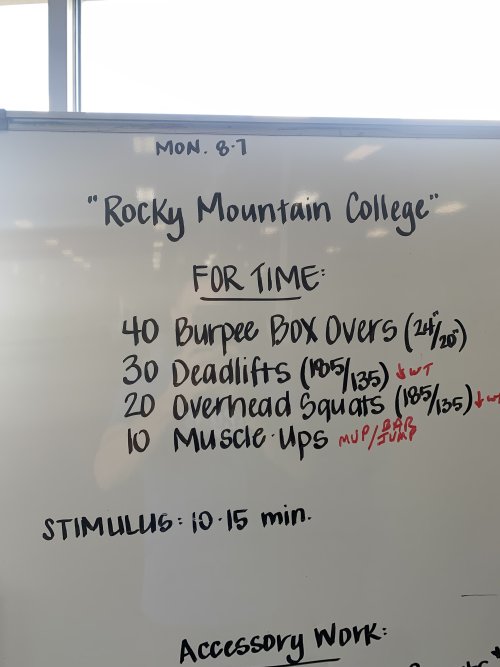 MON. 8.7
"Rocky Mountain College"
FOR TIME:
40 Burpee Box Overs (24"/20")
30 Deadlifts (185/135) ↓WT
20 Overhead Squats (185/135) ↓WT
10 Muscle-Ups MUP/BAR JUMP
STIMULUS: 10-15 min.
Accessory Work: